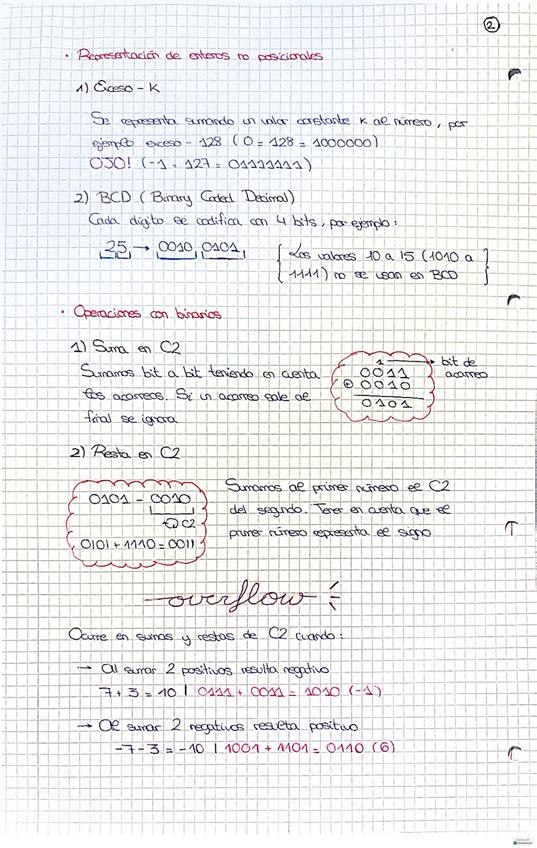 2
· Representación de enteros no posicionales
1) Exceso - K
Se representa sumando un valor constante K al número, por
ejemplo exceso - 128 (0 = 128 = 1000000)
OJO! (-1 = 127 = 01111111)
2) BCD (Binary Coded Decimal)
Cada dígito se codifica con 4 bits, por ejemplo:
25 → 0010 0101
{ Los valores 10 a 15 (1010 a
1111) no se usan en BCD }
· Operaciones con binarios
1) Suma en C2
Sumamos bit a bit teniendo en cuenta
los acarreos. Si un acarreo sale al
final se ignora
1 → bit de
acarreo
0011
⊕ 0010
0101
2) Resta en C2
0101 - 0010
C2
0101 + 1110 = 0011
Sumamos al primer número el C2
del segundo. Tener en cuenta que el
primer número representa el signo
overflow
Ocurre en sumas y restas de C2 cuando:
→ Al sumar 2 positivos resulta negativo
7 + 3 = 10 | 0111 + 0011 = 1010 (-1)
→ Al sumar 2 negativos resulta positivo
-7 - 3 = -10 | 1001 + 1101 = 0110 (6)